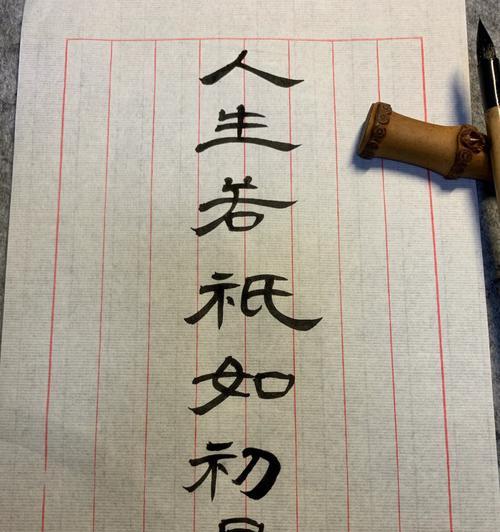 人生若祇如初